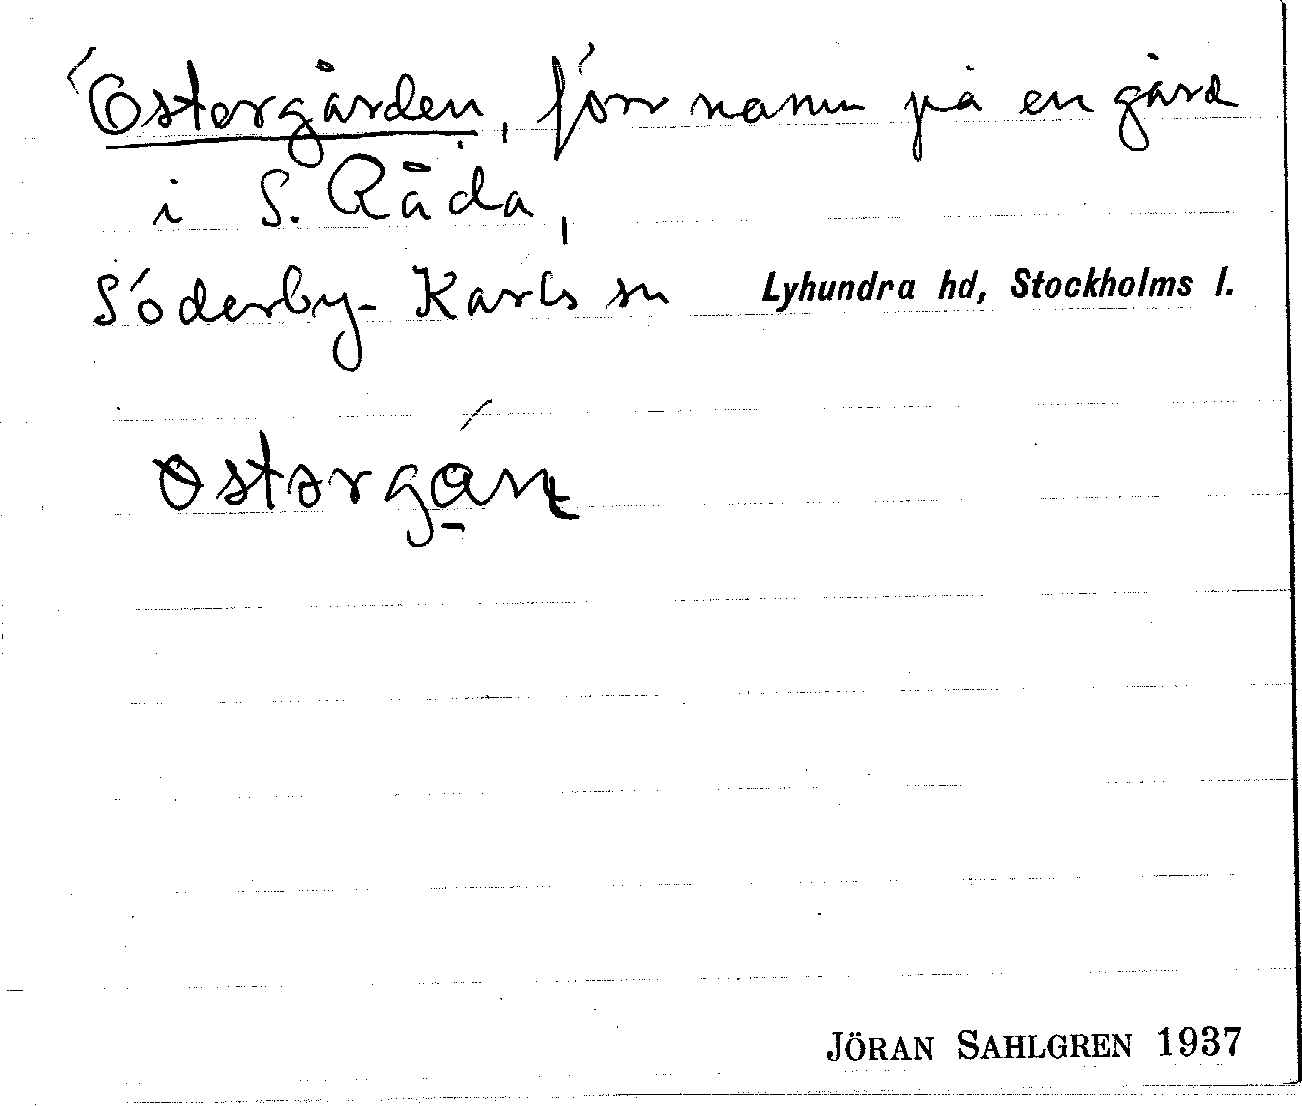 Östergården, förr namn på en gård
i S. Råda,
Söderby-Karls sn Lyhundra hd, Stockholms l.
JÖRAN SAHLGREN 1937